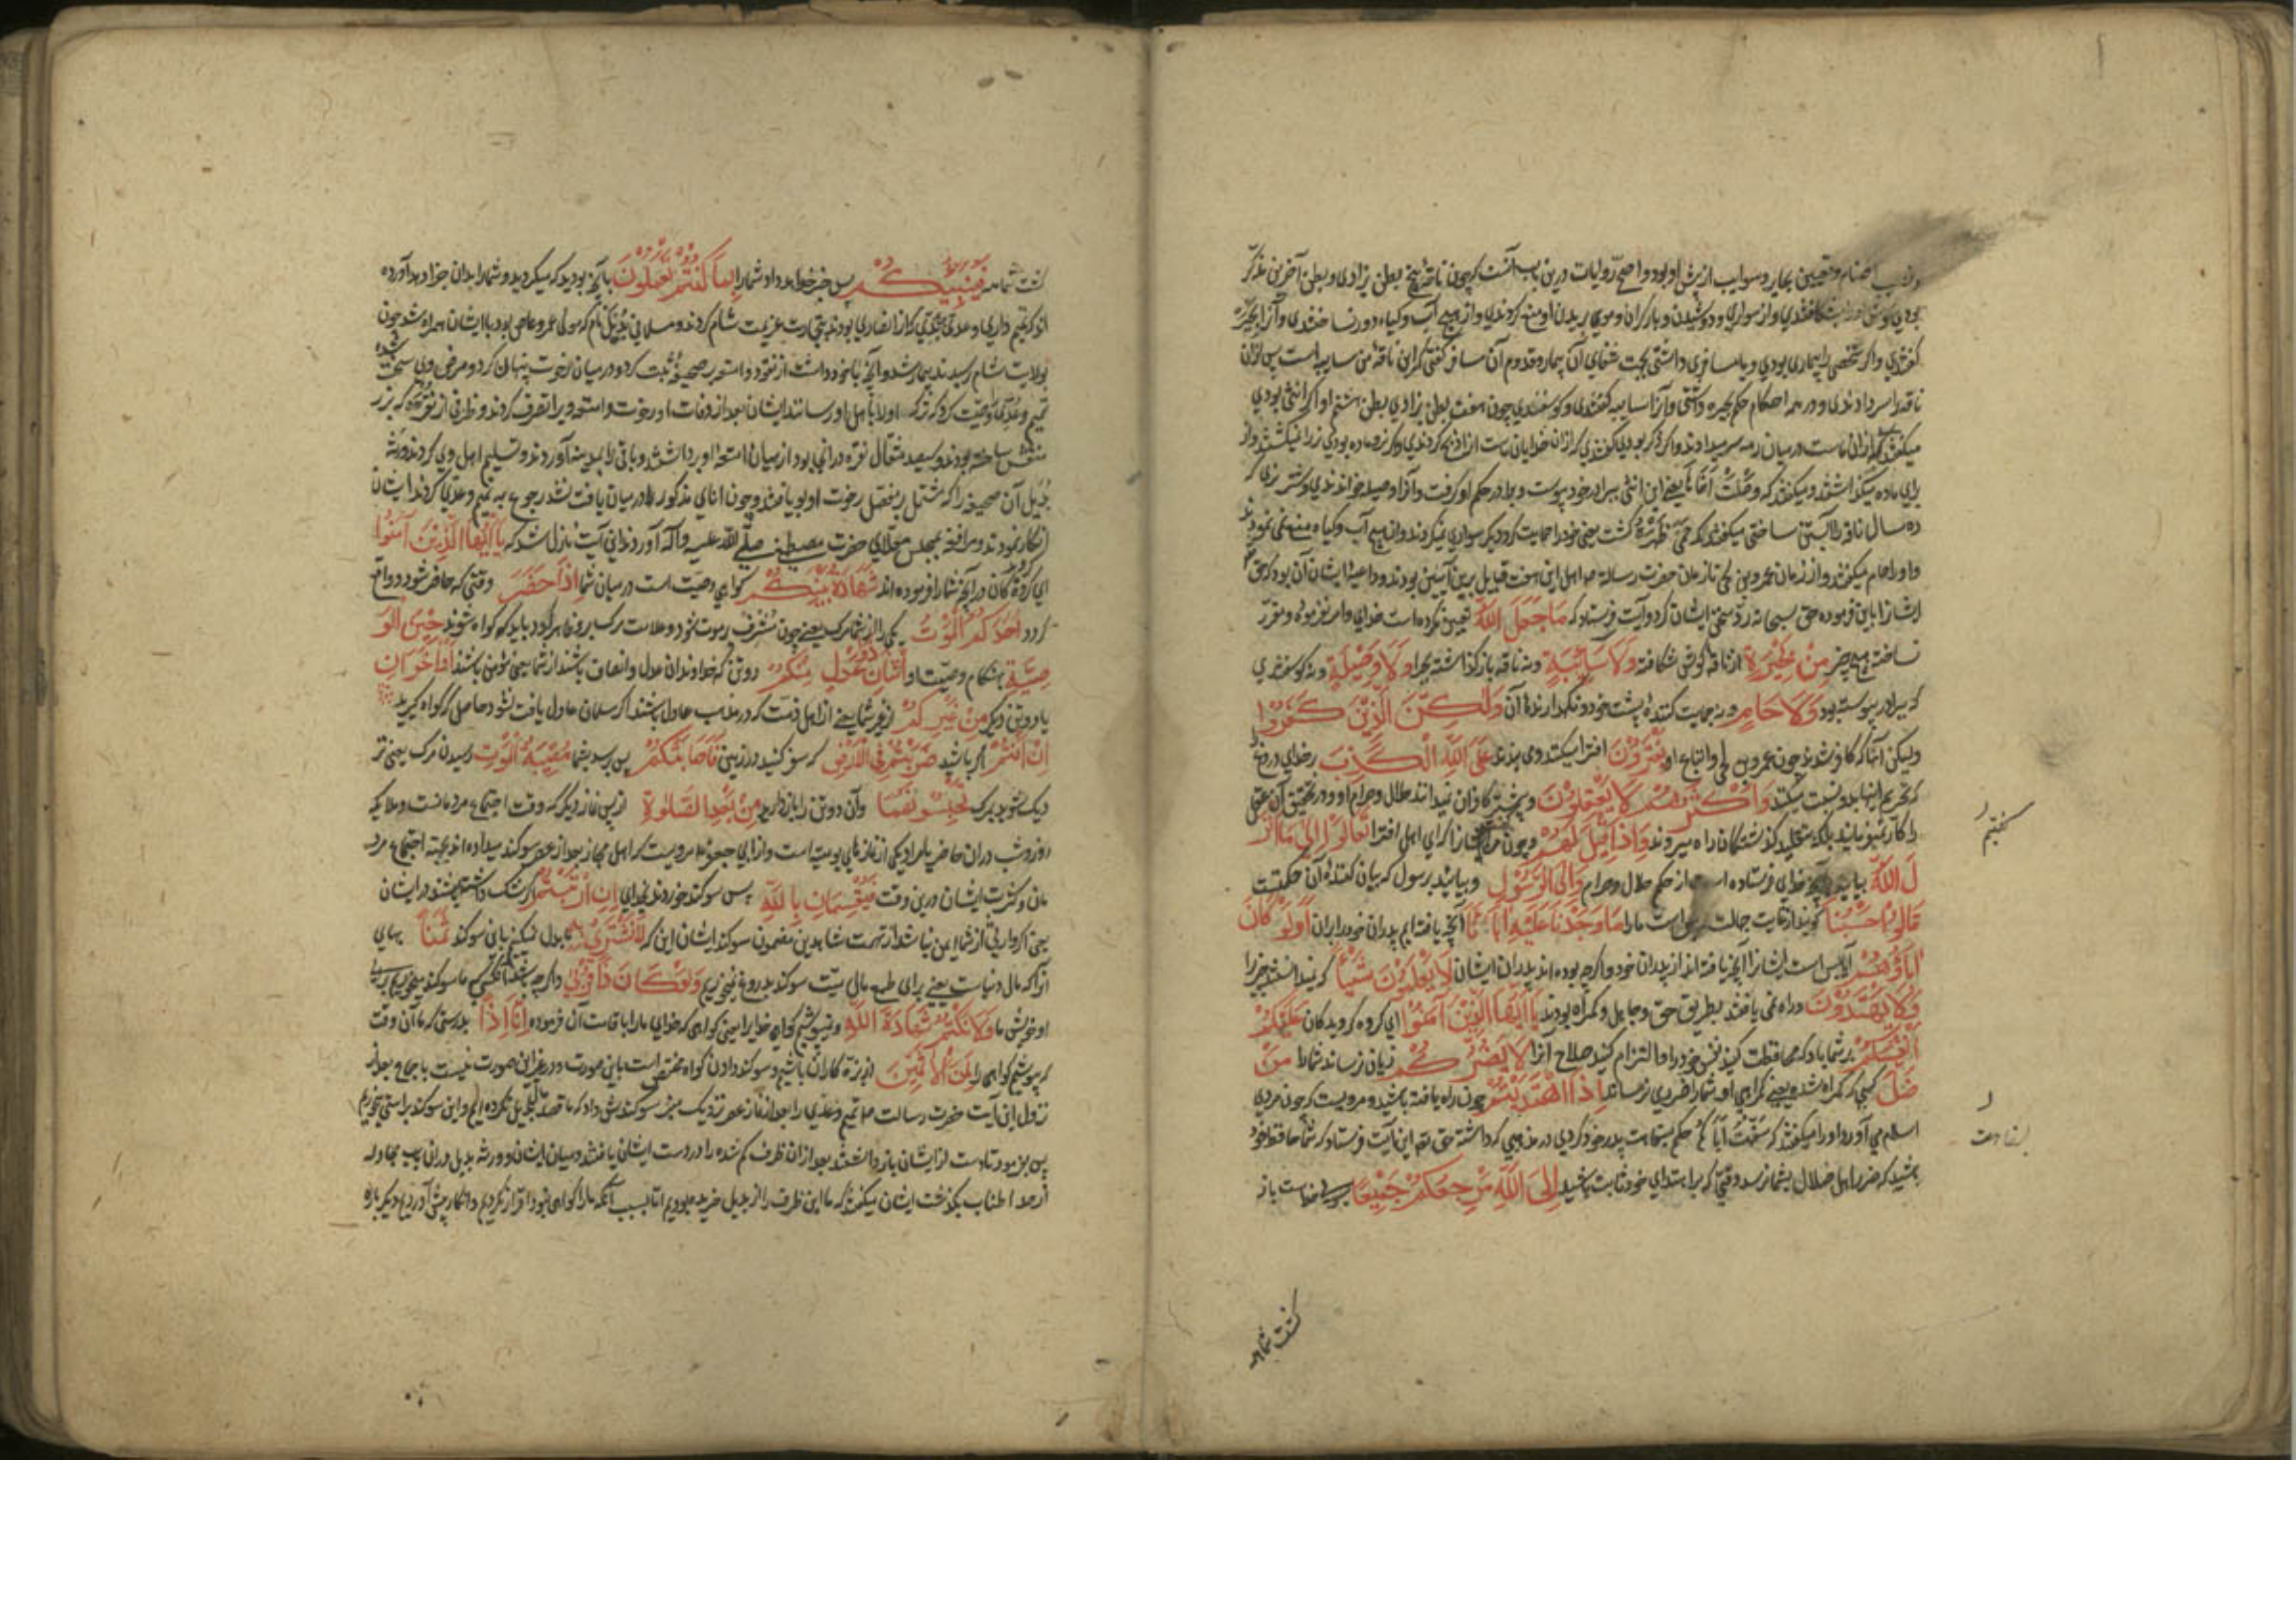 و نصب اصنام و تعیین بحایر و سوایب از پیش او بود و اصح روایات درین باب آنست که چون ناقه پنج بطن بزادی و بطن آخرین مذکر
بودی گوش او را بشکافتندی و از سواری و دوشیدن و بار کردن و موی بریدن او منع کردندی و از هیچ آب و گیاه دور نساختندی و آنرا بحیره
گفتندی و اگر شخصی را بیماری بودی و یا مسافری داشتی بجهت شفای آن بیمار و قدوم آن مسافر گفتی که این ناقه من سایبه است پس آن
ناقه را سر دادندی و در همه احکام حکم بحیره داشتی و آنرا سایبه گفتندی و گوسفندی چون هفت بطن بزادی بطن هشتم او اگر انثی بودی
میگفتند که از آن ماست در میان رمه سر میدادند و اگر ذکر بودی گفتندی که از آن خدایان ماست او را ذبح کردندی و اگر نر و ماده بودی نر را نمیکشتند و از
برای ماده میگذاشتند و میگفتند که وصلت اخاها یعنی این انثی ببرادر خود پیوست و برادر حکم او گرفت و آنرا وصیله خواندندی و شتر نری که
ده سال ناقه را آبستن ساختی میگفتند که حمی ظهره پشت خود را حمایت کرد و دیگر سواری نمیکردند و از هیچ آب و گیاه منع نمی نمودند
و او را حام میگفتند و از زمان عمرو بن لحی تا زمان حضرت رسالت صلعم اهل این هفت قبایل برین آیین بودند و داعیه ایشان آن بود که حق
ایشانرا باین فرموده حق سبحانه رد سخن ایشان کرد و آیت فرستاد که مَا جَعَلَ اللَّهُ تعیین نکرده است خدای و امر نفرموده و مقرر
نساخته هیچ چیز مِنْ بَحِيرَةٍ از ناقه گوش شکافته وَلَا سَائِبَةٍ و نه ناقه باز گذاشته بچرا وَلَا وَصِيلَةٍ و نه گوسفندی
که ببرادر پیوسته بود وَلَا حَامٍ و نه حمایت کننده پشت خود و نگهدارنده آن وَلَكِنَّ الَّذِينَ كَفَرُوا
ولیکن آنها که کافر شدند چون عمرو بن لحی و اتباع او يَفْتَرُونَ افترا میکنند و می بندند عَلَى اللَّهِ الْكَذِبَ بر خدای دروغ
که تحریم اینها بدو نسبت میکنند وَأَكْثَرُهُمْ لَا يَعْقِلُونَ و بیشتر کافران نمیدانند حلال و حرام او و در تحقیق آن عقل
را کار نمیفرمایند بلکه بتقلید گذشتگان راه میروند وَإِذَا قِيلَ لَهُمْ و چون مر ایشانرا که ای اهل افترا تَعَالَوْا إِلَى مَا أَنْزَ
لَ اللَّهُ بیایید بآنچه خدای فرستاده است از حکم حلال و حرام وَإِلَى الرَّسُولِ و بیایید برسول که بیان کننده آن حکمست
قَالُوا حَسْبُنَا گویند از غایت جهالت بس است ما را مَا وَجَدْنَا عَلَيْهِ آبَاءَنَا آنچه یافته ایم پدران خود را بر آن أَوَلَوْ كَانَ
آبَاؤُهُمْ آیا بس است ایشانرا آنچه یافته اند از پدران خود و اگرچه بوده اند پدران ایشان لَا يَعْلَمُونَ شَيْئًا که نمیدانستند چیزی را
وَلَا يَهْتَدُونَ و راه نمی یافتند بطریق حق و جاهل و گمراه بودند يَا أَيُّهَا الَّذِينَ آمَنُوا ای گروه گرویدگان عَلَيْكُمْ
أَنْفُسَكُمْ بر شما باد که محافظت کنید نفس خود را و التزام کنید صلاح آنرا لَا يَضُرُّكُمْ زیان نرساند شما را مَنْ
ضَلَّ کسی که گمراه شده یعنی گمراهی او شما را ضرری نرساند إِذَا اهْتَدَيْتُمْ چون راه یافته باشید و مرویست که چون مردی
اسلام می آورد او را میگفتند که سفهت اباک حکم بسفاهت پدر خود کردی در مذهبی که داشته حق تعالی این آیت فرستاد که شما حافظ خود
باشید که ضرر اهل ضلال بشما نرسد وقتی که بر اهتدای خود ثابت باشید إِلَى اللَّهِ مَرْجِعُكُمْ جَمِيعًا بسوی خداست باز
گشت شما همه
گشت شما همه فَيُنَبِّئُكُمْ پس خبر خواهد داد شما را بِمَا كُنْتُمْ تَعْمَلُونَ بآنچه بودید که میکردید و شما را بدان جزا دهد آورده
اند که تمیم داری و عدی بن بدی که از نصاری بودند بتجارت عزیمت شام کردند و مسلمانی بدیل نام که مولی عمرو عاص بود با ایشان همراه شد چون
بولایت شام رسیدند بیمار شد و آنچه با خود داشت از نقود و امتعه در صحیفه ثبت کرد و در میان رخوت پنهان کرد و مرض وی سخت شده
تمیم و عدی را وصیت کرد که ترکه او را باهل او رسانند ایشان بعد از وفات او رخت و امتعه ویرا تصرف کردند و ظرفی از نقره که بزر
منقش ساخته بودند و سیصد مثقال نقره در آنجا بود از میان امتعه او برداشتند و باقی را بمدینه آوردند و تسلیم اهل وی کردند ورثه
بدیل آن صحیفه را که مشتمل بر مفصل رخوت او بود یافتند و چون انای مذکور را در میان یافت نشد رجوع به تمیم و عدی کردند ایشان
انکار نمودند و مرافعه بمجلس معلای حضرت مصطفی صلی الله علیه و آله آوردند این آیت نازل شد که يَا أَيُّهَا الَّذِينَ آمَنُوا
ای گرویدگان در آنچه شما را فرموده اند شَهَادَةُ بَيْنِكُمْ گواهی وصیت است در میان شما إِذَا حَضَرَ وقتی که حاضر شود و واقع
گردد أَحَدَكُمُ الْمَوْتُ یکی را از شما مرگ یعنی چون مشرف بر موت شود و علامت مرگ برو ظاهر گردد باید که گواه شوند حِينَ الْوَ
صِيَّةِ بهنگام وصیت او اثْنَانِ ذَوَا عَدْلٍ مِنْكُمْ دو تن که خداوندان عدل و انصاف باشند از شما یعنی مؤمن باشند أَوْ آخَرَانِ
یا دو تن دیگر مِنْ غَيْرِكُمْ از غیر شما یعنی از اهل ذمت که در مذهب عادل باشند اگر مسلمان عادل یافت نشود حاصل که گواه گیرید
إِنْ أَنْتُمْ اگر باشید ضَرَبْتُمْ فِي الْأَرْضِ که سفر کنید در زمین فَأَصَابَتْكُمْ پس برسد بشما مُصِيبَةُ الْمَوْتِ رسیدن مرگ یعنی نز
دیک شوید بمرگ تَحْبِسُونَهُمَا و آن دو تن را باز دارید مِنْ بَعْدِ الصَّلَاةِ از پس نماز دیگر که وقت اجتماع مردمانست و ملایکه
روز و شب در آن حاضر یا مراد یکی از نمازهای یومیه است و از ابی جعفر مرویست که اهل حجاز بعد از عصر سوگند میداده اند بجهت اجتماع مرد
مان و کثرت ایشان درین وقت فَيُقْسِمَانِ بِاللَّهِ پس سوگند خورند بخدای إِنِ ارْتَبْتُمْ اگر شک داشته باشید در ایشان
یعنی اگر وارثی از شما ایمن نباشد از تهمت شاهدین مضمون سوگند ایشان این که لَا نَشْتَرِي بِهِ بدل نمیکنیم باین سوگند ثَمَنًا بهای
آنرا که مال دنیاست یعنی برای طمع مالی میت سوگند بدروغ نمیخوریم وَلَوْ كَانَ ذَا قُرْبَى و اگرچه باشد آنکس که ما سوگند میخوریم برای
او خویش ما وَلَا نَكْتُمُ شَهَادَةَ اللَّهِ و نمیپوشیم گواهی خدا یرا یعنی گواهی که خدای ما را باقامت آن فرموده إِنَّا إِذًا بدرستی که ما آن وقت
که بپوشیم گواهی را لَمِنَ الْآثِمِينَ از بزه کاران باشیم و سوگند دادن گواه مختص است باین صورت و در غیر این صورت نیست باجماع و بعد از
نزول این آیت حضرت رسالت صلعم تمیم و عدی را بعد از نماز عصر نزدیک منبر سوگندش داد که ما قصد مال بدیل نکرده ایم و این سوگند براستی میخوریم
پس بفرمود تا دست از ایشان باز داشتند بعد از آن ظرف گم شده را در دست ایشان یافتند و میان ایشان و ورثه بدیل در آن سبب مجادله
از حد اطناب بگذشت ایشان میگفتند که ما این ظرف را از بدیل خریده بودیم اما بسبب آنکه ما را گواهی نبود اقرار نکردیم و انکار پیش آوردیم دیگر باره